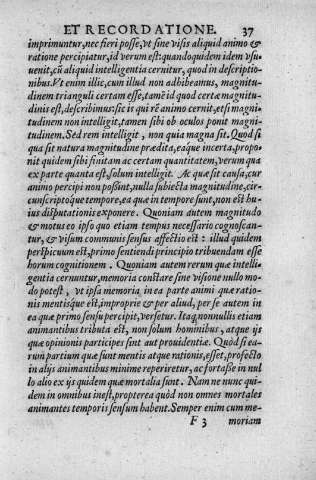 ET RECORDATIONE. 37
imprimuntur, nec fieri posse, vt sine visis aliquid animo &
ratione percipiatur, id verum est: quandoquidem idem vsu-
uenit, cũ aliquid intelligentia cernitur, quod in descriptio-
nibus. Vt enim illic, cum illud non adhibeamus, magnitu-
dinem trianguli certam esse, tamẽ id quod certæ magnitu-
dinis est, describimus: sic is qui rẽ animo cernit, etsi magni-
tudinem non intelligit, tamen sibi ob oculos ponit magni-
tudinem. Sed rem intelligit, non quia magna sit. Quod si
qua sit natura magnitudine prædita, eaque incerta, propo-
nit quidem sibi finitam ac certam quantitatem, verum qua
ex parte quanta est, solum intelligit. Ac quæ sit causa, cur
animo percipi non possint, nulla subiecta magnitudine, cir-
cunscriptóque tempore, ea quæ in tempore sunt, non est hu-
ius disputationis exponere. Quoniam autem magnitudo
& motus eo ipso quo etiam tempus necessario cognoscan-
tur, & visum communis sensus affectio est: illud quidem
perspicuum est, primo sentiendi principio tribuendam esse
horum cognitionem. Quoniam autem rerum quæ intelli-
gentia cernuntur, memoria constare sine visione nullo mo-
do potest, vt ipsa memoria in ea parte animi quæ ratio-
nis mentisque est, improprie & per aliud, per se autem in
ea quæ primo sensu percipit, versetur. Itaq, nonnullis etiam
animantibus tributa est, non solum hominibus, atque ijs
quæ opinionis participes sint aut prouidentiæ. Quòd si ea-
rum partium quæ sunt mentis atque rationis, esset, profecto
in alijs animantibus minime reperiretur, ac fortasse in nul
lo alio ex ijs quidem quæ mortalia sint. Nam ne nunc qui-
dem in omnibus inest, propterea quòd non omnes mortales
animantes temporis sensum habent. Semper enim cum me-
F 3 moriam